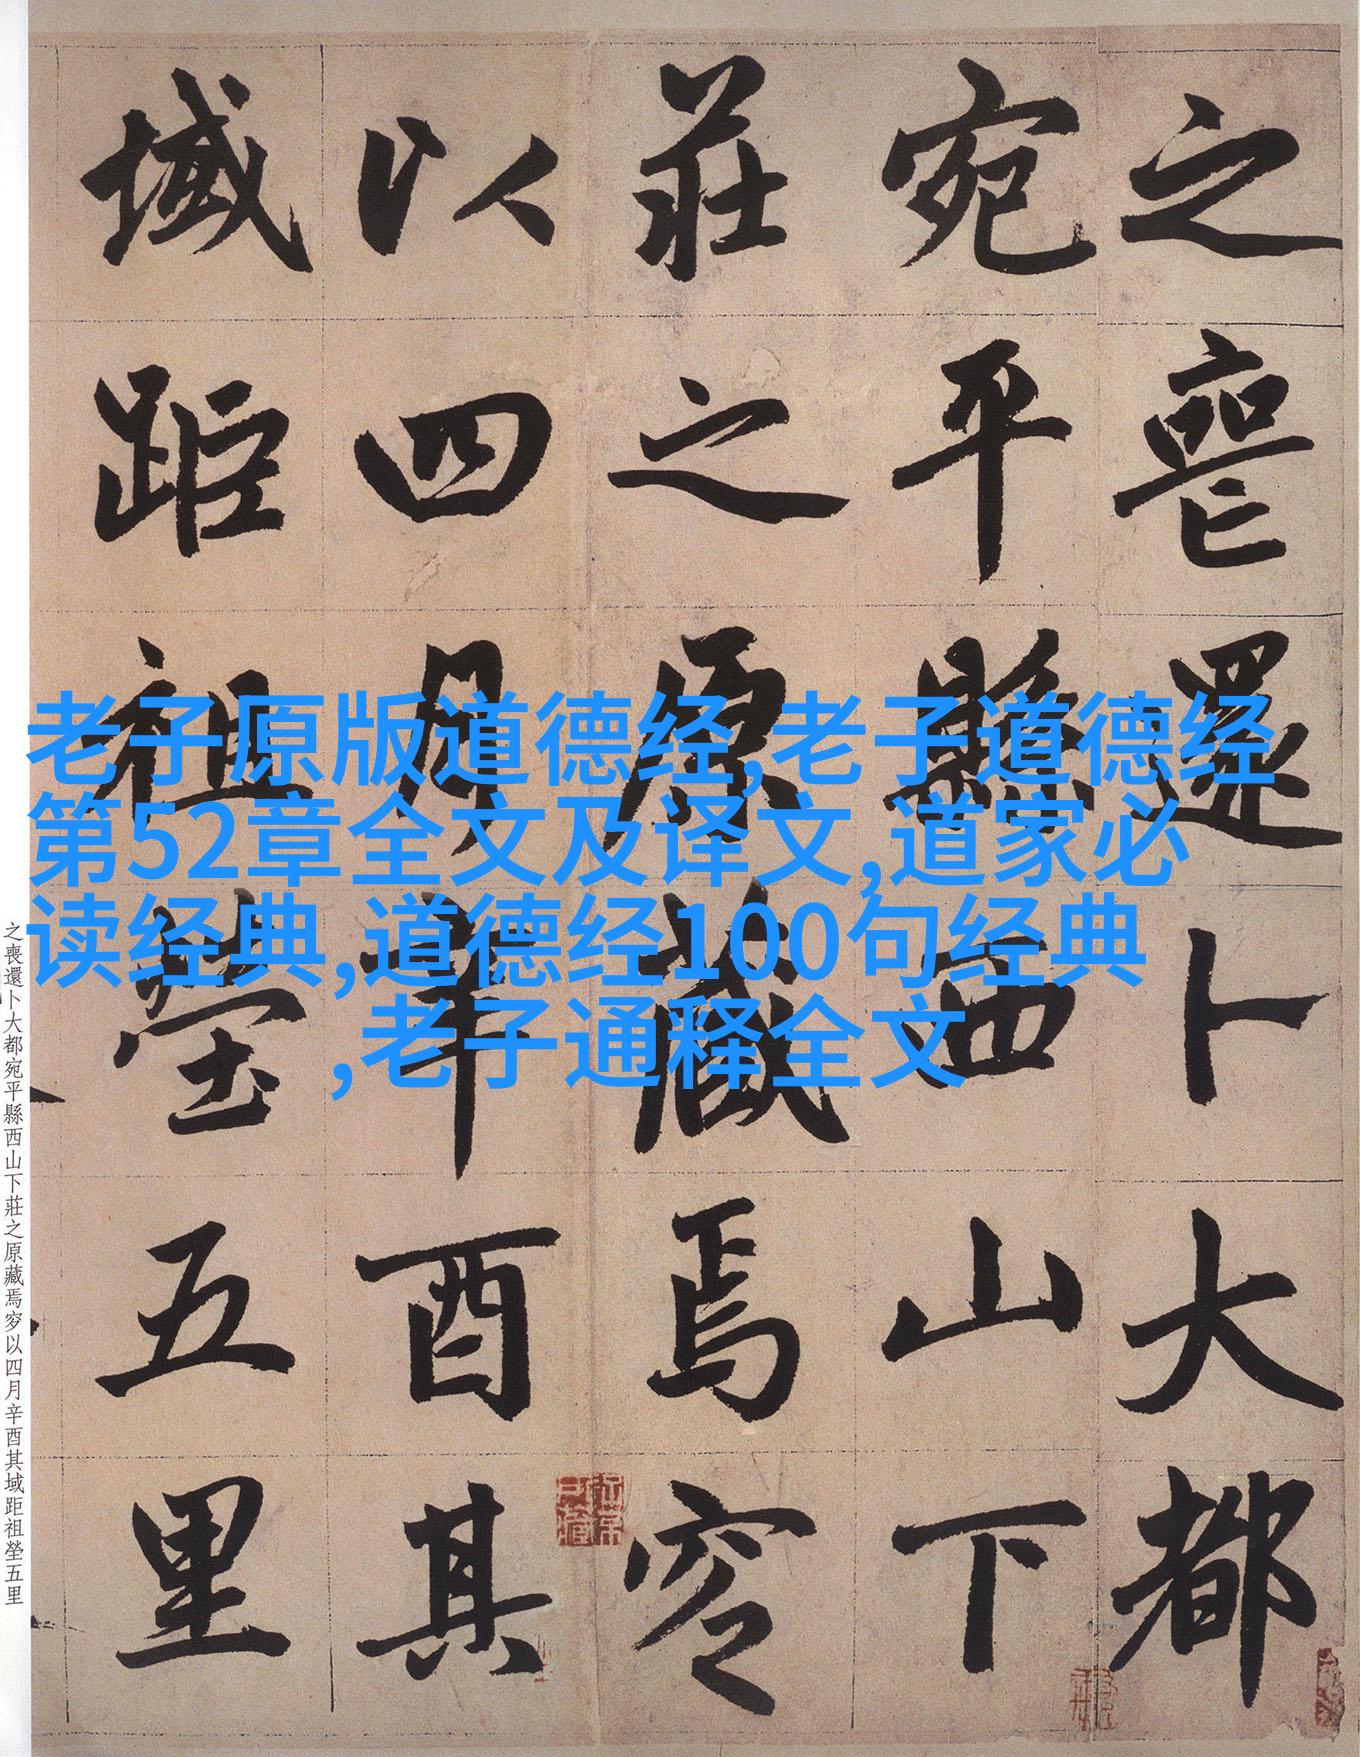 之喪還卜大都
宛平縣西山下
莊之原藏焉窆
以四月辛酉其
域距祖塋五里
老子原版道德经,老子道德经
第52章全文及译文,道家必
读经典,道德经100句经典
,老子通释全文
之喪還卜大都宛平縣西山下莊之原藏焉窆以四月辛酉其域距祖塋五里